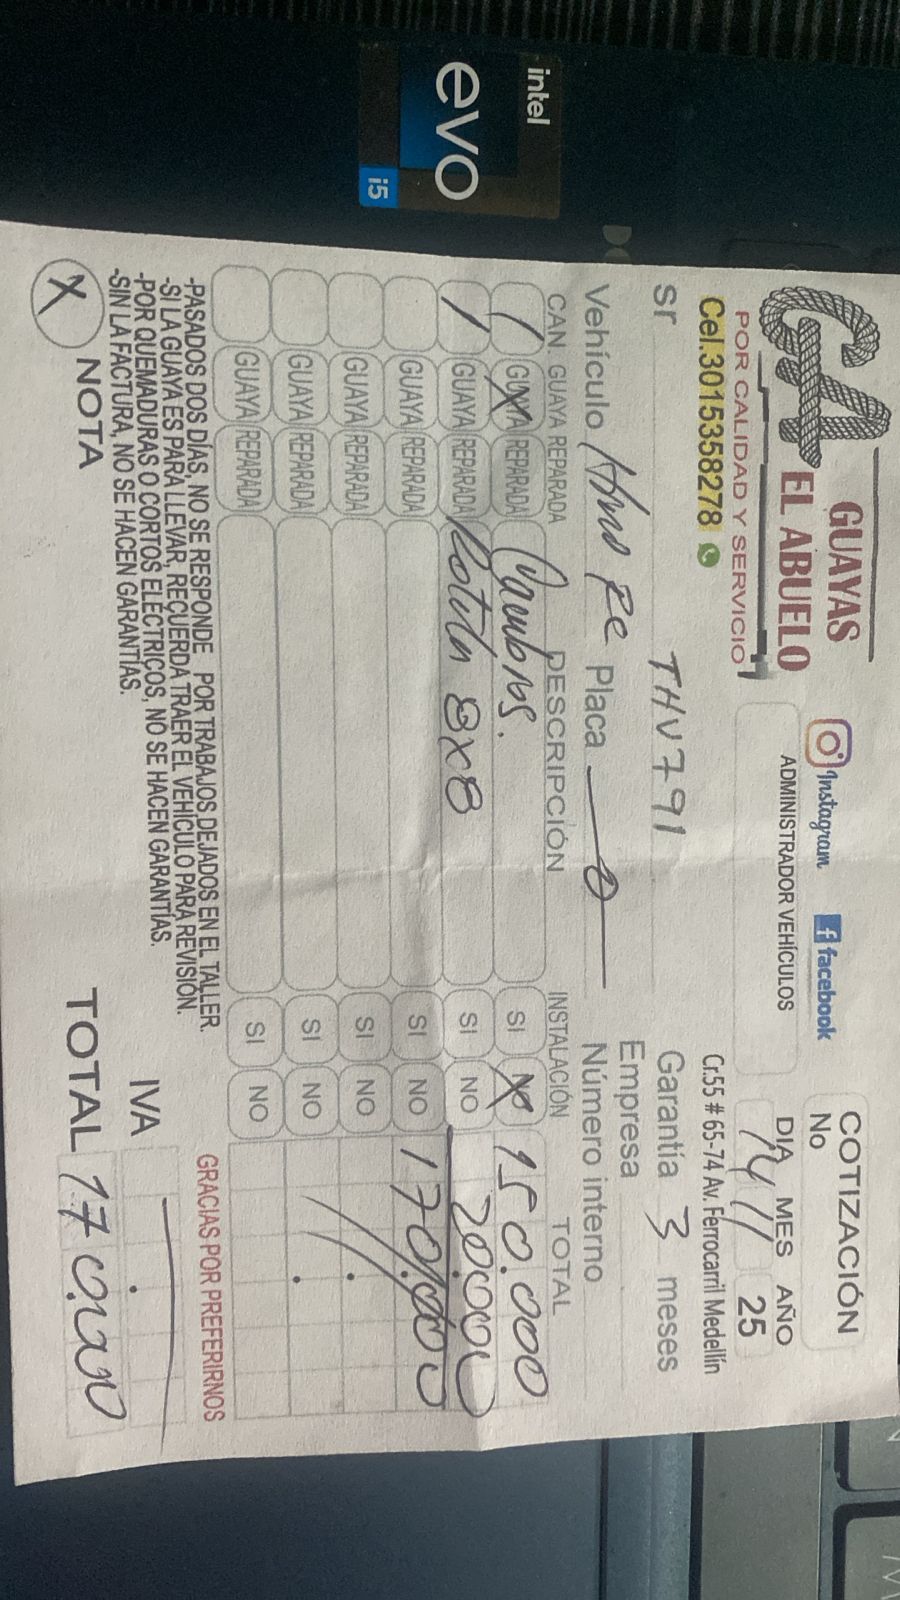 GUAYAS
EL ABUELO
GA
POR CALIDAD Y SERVICIO
Cel.3015358278
Instagram facebook
ADMINISTRADOR VEHÍCULOS
COTIZACIÓN
No
DIA MES AÑO
14 11 25
Cr.55 # 65-74 Av. Ferrocarril Medellín
Sr THV791 Garantía 3 meses
Empresa
Vehículo Placa Número interno
CAN. GUAYA REPARADA DESCRIPCIÓN INSTALACIÓN TOTAL
1 GUAYA REPARADA Cambios. SI NO 150.000
1 GUAYA REPARADA Rotula 8x8 SI NO 20.000
GUAYA REPARADA SI NO 170.000
GUAYA REPARADA SI NO
GUAYA REPARADA SI NO
GUAYA REPARADA SI NO
-PASADOS DOS DÍAS, NO SE RESPONDE POR TRABAJOS DEJADOS EN EL TALLER.
-SI LA GUAYA ES PARA LLEVAR, RECUERDA TRAER EL VEHÍCULO PARA REVISIÓN.
-POR QUEMADURAS O CORTOS ELÉCTRICOS, NO SE HACEN GARANTÍAS.
-SIN LA FACTURA, NO SE HACEN GARANTÍAS.
GRACIAS POR PREFERIRNOS
IVA
X NOTA
TOTAL 170.000
intel
evo
i5